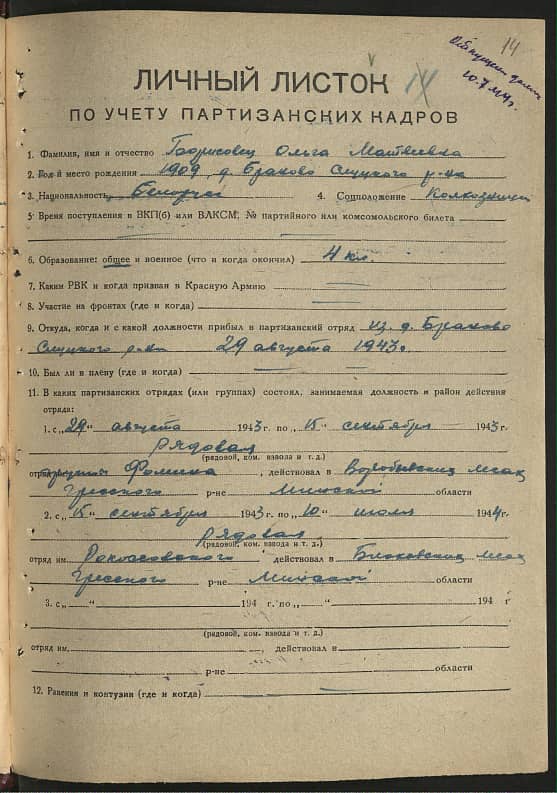 14
10.7.44г.
ЛИЧНЫЙ ЛИСТОК 14
ПО УЧЕТУ ПАРТИЗАНСКИХ КАДРОВ
1. Фамилия, имя и отчество Гаврисовец Ольга Матвеевна
2. Год и место рождения 1909, д. Браково Слуцкого р-на
3. Национальность 4. Соцположение Колхозница
5. Время поступления в ВКП(б) или ВЛКСМ, № партийного или комсомольского билета
6. Образование: общее и военное (что и когда окончил) 4 кл.
7. Каким РВК и когда призван в Красную Армию
8. Участие на фронтах (где и когда)
9. Откуда, когда и с какой должности прибыл в партизанский отряд из д. Браково
Слуцкого р-на 29 августа 1943г.
10. Был ли в плену (где и когда)
11. В каких партизанских отрядах (или группах) состоял, занимаемая должность и район действия
отряда:
1. с „29“ августа 1943 г. по „15“ сентября 1943 г.
рядовая
(рядовой, ком. взвода и т. д.)
отряд Фомина, действовал в лесах
Гресского р-не Минской области
2. с „15“ сентября 1943 г. по „10“ июля 1944 г.
рядовая
(рядовой, ком. взвода и т. д.)
отряд им. Рокоссовского действовал в лесах
Гресского р-не Минской области
3. с „ “ 194 г. по „ “ 194 г
(рядовой, ком. взвода и т. д.)
отряд им. , действовал в
р-не области
12. Ранения и контузии (где и когда)